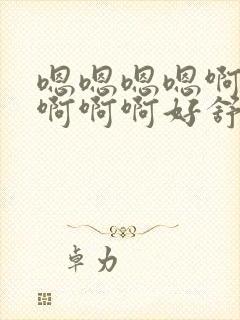 嗯嗯嗯嗯啊
啊啊啊好舒
卓力